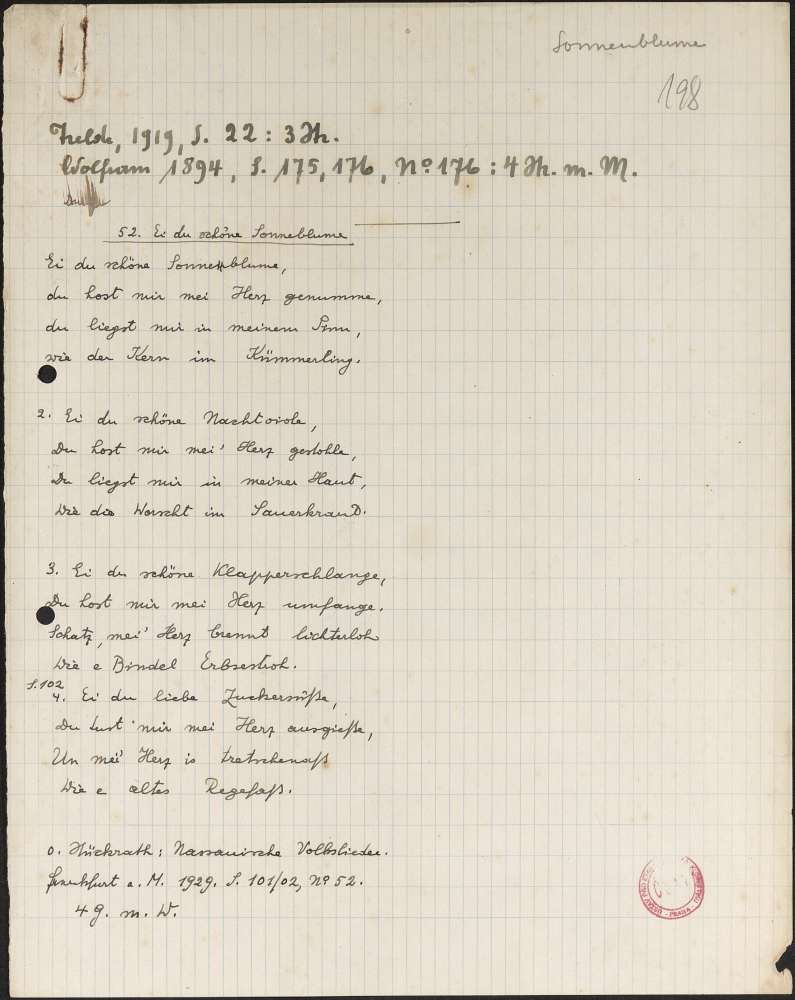 Sonnenblume
198
Helde, 1919, S. 22 : 3 Str.
Wolfram 1894, S. 175, 176, No 176 : 4 Str. m. M.
52. Ei du schöne Sonneblume
Ei du schöne Sonneblume,
du host mir mei Herz genumme,
du liegst mir in meinem Sinn,
wie der Kern im Kümmerling.
2. Ei du schöne Nachtviole,
Du host mir mei' Herz gestohle,
Du liegst mir in meiner Haut,
Wie die Worscht im Sauerkraut.
3. Ei du schöne Klapperschlange,
Du host mir mei Herz umfange.
Schatz, mei' Herz brennt lichterloh
Wie e Bindel Erbsestroh.
S. 102
4. Ei du liebe Zuckersüße,
Du tust mir mei Herz ausgieße,
Un mei' Herz is tretschenaß
Wie e altes Regefaß.
o. Stückrath: Nassauische Volkslieder.
Frankfurt a. M. 1929. S. 101/02, No 52.
4 g. m. W.
PRAHA